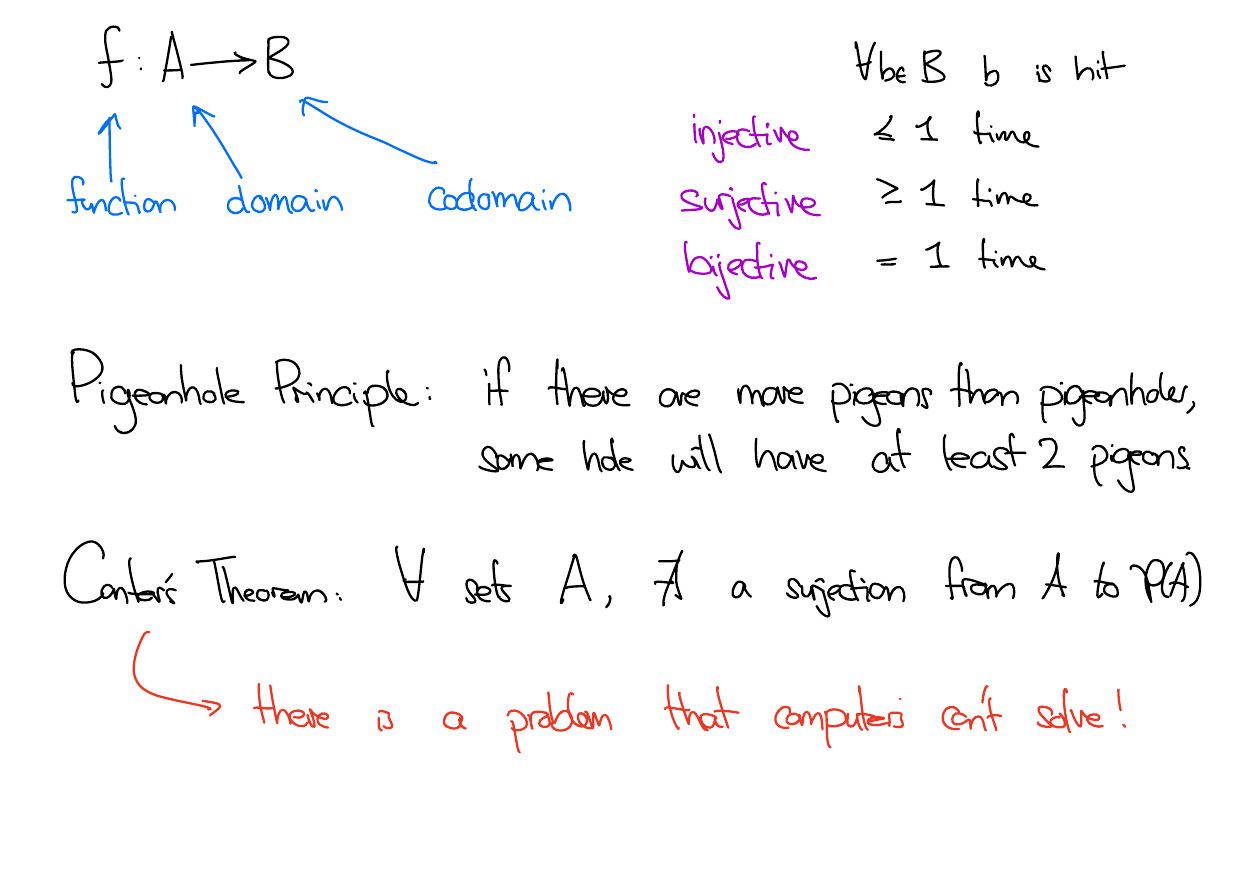 f : A → B
function domain codomain
∀b∈B b is hit
injective ≤ 1 time
surjective ≥ 1 time
bijective = 1 time
Pigeonhole Principle: if there are more pigeons than pigeonholes,
some hole will have at least 2 pigeons
Cantor's Theorem: ∀ sets A, ∄ a surjection from A to P(A)
there is a problem that computers can't solve!